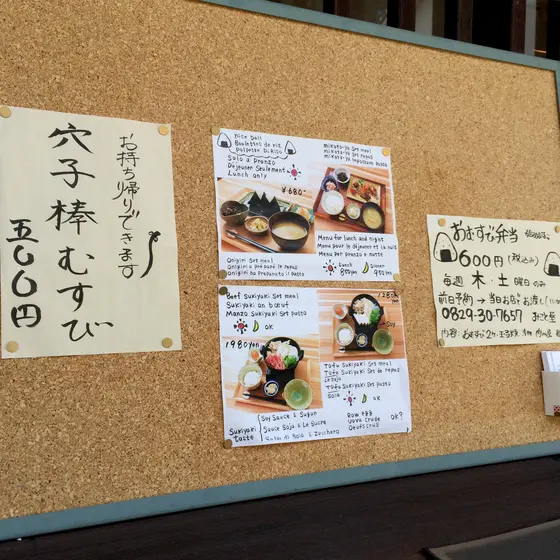 お持ち帰りできます
穴子棒むすび
五〇〇円
Rice ball
Boulettes de riz
Polpette Di Riso
Solo a pranzo
Déjeuner Seulement
Lunch only
¥680-
Onigiri set meal
Onigiri a préparé le repas
Onigiri ha Preparato il pasto
Mikota-ya set meal
Menu for lunch and night
Menu pour le déjeuner et la nuit
Menu per pranzo e notte
Lunch
850yen
Dinner
950yen
Beef Sukiyaki set meal
Sukiyaki au bœuf
Manzo Sukiyaki Set pasto
OK
1980yen
1280yen
Soy
Tofu Sukiyaki Set meal
Tofu Sukiyaki Set de repas
Tofu Sukiyaki Set pasto
Soia
OK
Sukiyaki taste
Soy Sauce & Sugar
Sauce Soja & Le Sucre
Salsa di Soia & Zucchero
Raw egg
uova crude
Oeufs crus
OK?
おむすび弁当
600円(税込み)
毎週 木・土 曜日のみ
前日予約→当日お昼お渡し
0829-30-7657
内容:おむすび2ケ